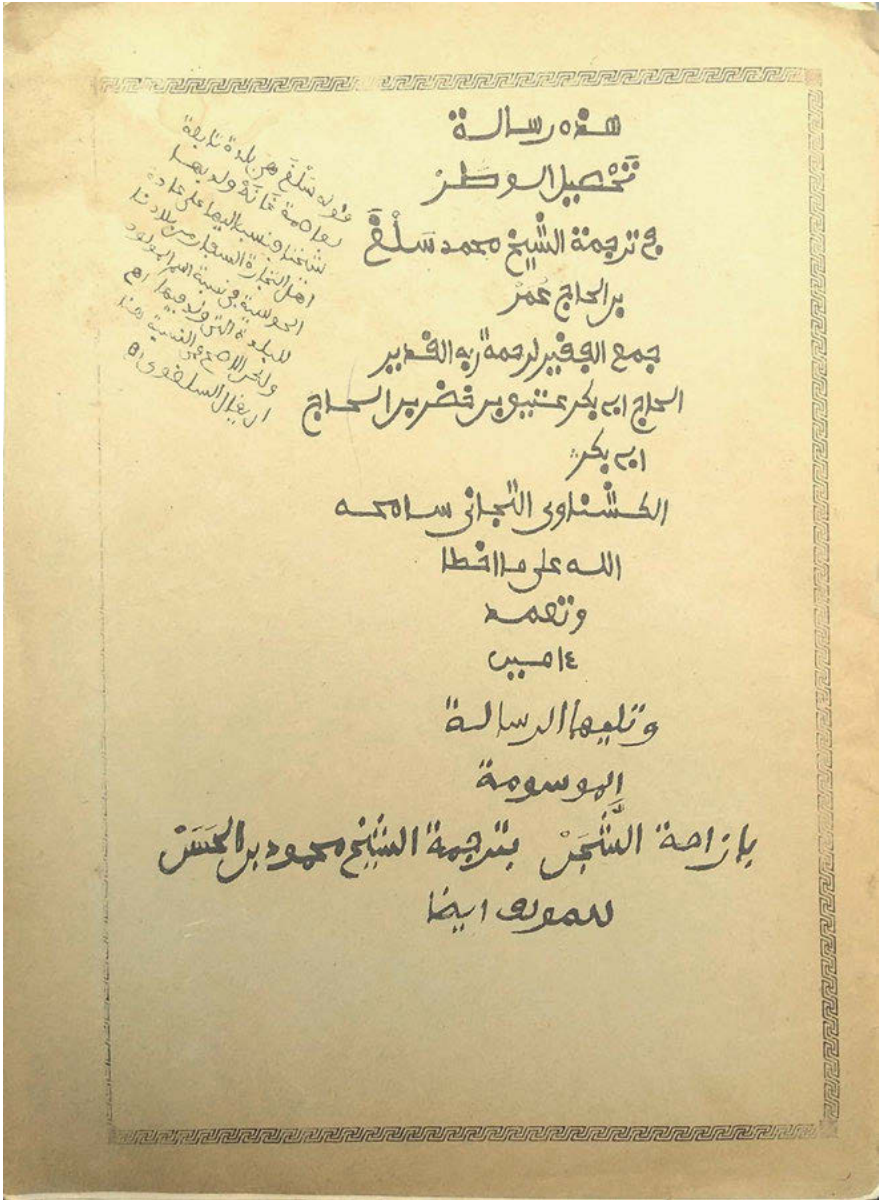 هذه رسالة
تَحْصِيل الوطرْ
في ترجمة الشيخ محمد سَلْغَ
بن الحاج عُمَرْ
جمع الفقير لرحمة ربه القدير
الحاج ابى بكر عتيق بن خضر بن الحاج
ابى بكر
الكشناوى التجانى سامحه
الله على ما اخطا
وتعمد
ءامين
وتليها الرسالة
الموسومة
بازاحة الشَّجَنْ بترجمة الشيخ محمود بن الحَسَنْ
للمولف ايضا
قوله سَلْغَ هى بلدة تابعة
بعاصمة غَانَهْ ولد بها
شيخنا ونسب اليها على عادة
اهل التجارة السفار من بلادنا
الحوسية فى نسبة اسم المولود
للبلدة التى ولد فيها اهـ
ولعل الاصح فى النسبة هنا
ان يقال السلغوى اهـ